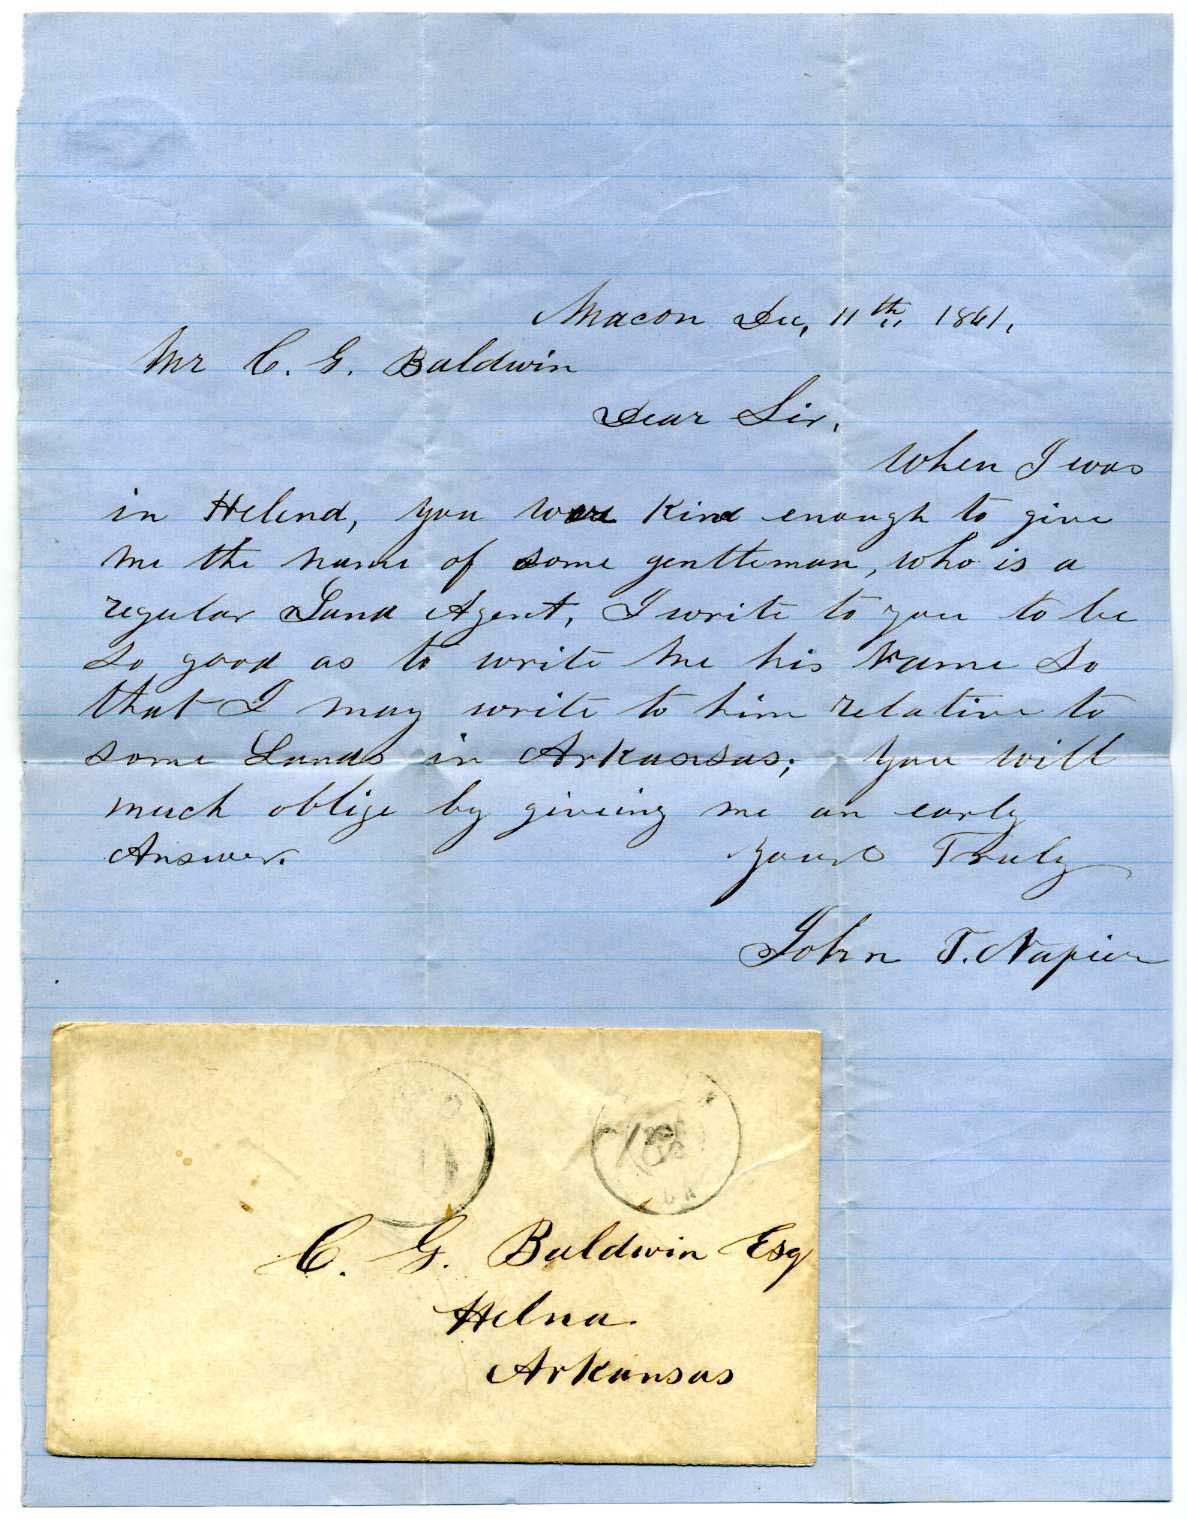 Macon Dec, 11th 1861,
Mr C. G. Baldwin
Dear Sir,
When I was
in Helena, you were kind enough to give
me the name of some gentleman, who is a
regular Land Agent, I write to you to be
so good as to write me his Name so
that I may write to him relative to
some Lands in Arkansas; you will
much oblige by giveing me an early
Answer. Yours Truly
John T. Napier
GA
C. G. Baldwin Esq
Helna
Arkansas